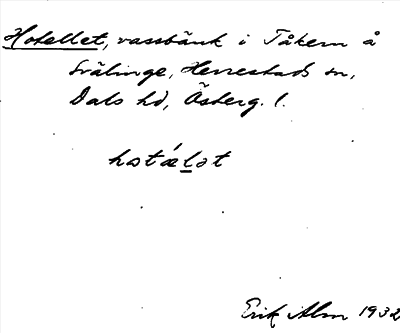 Hotellet, vassbänk i Tåkern å
Svälinge, Herrestads sn,
Dals hd, Österg. l.
hotǽlət
Erik Alm 1932